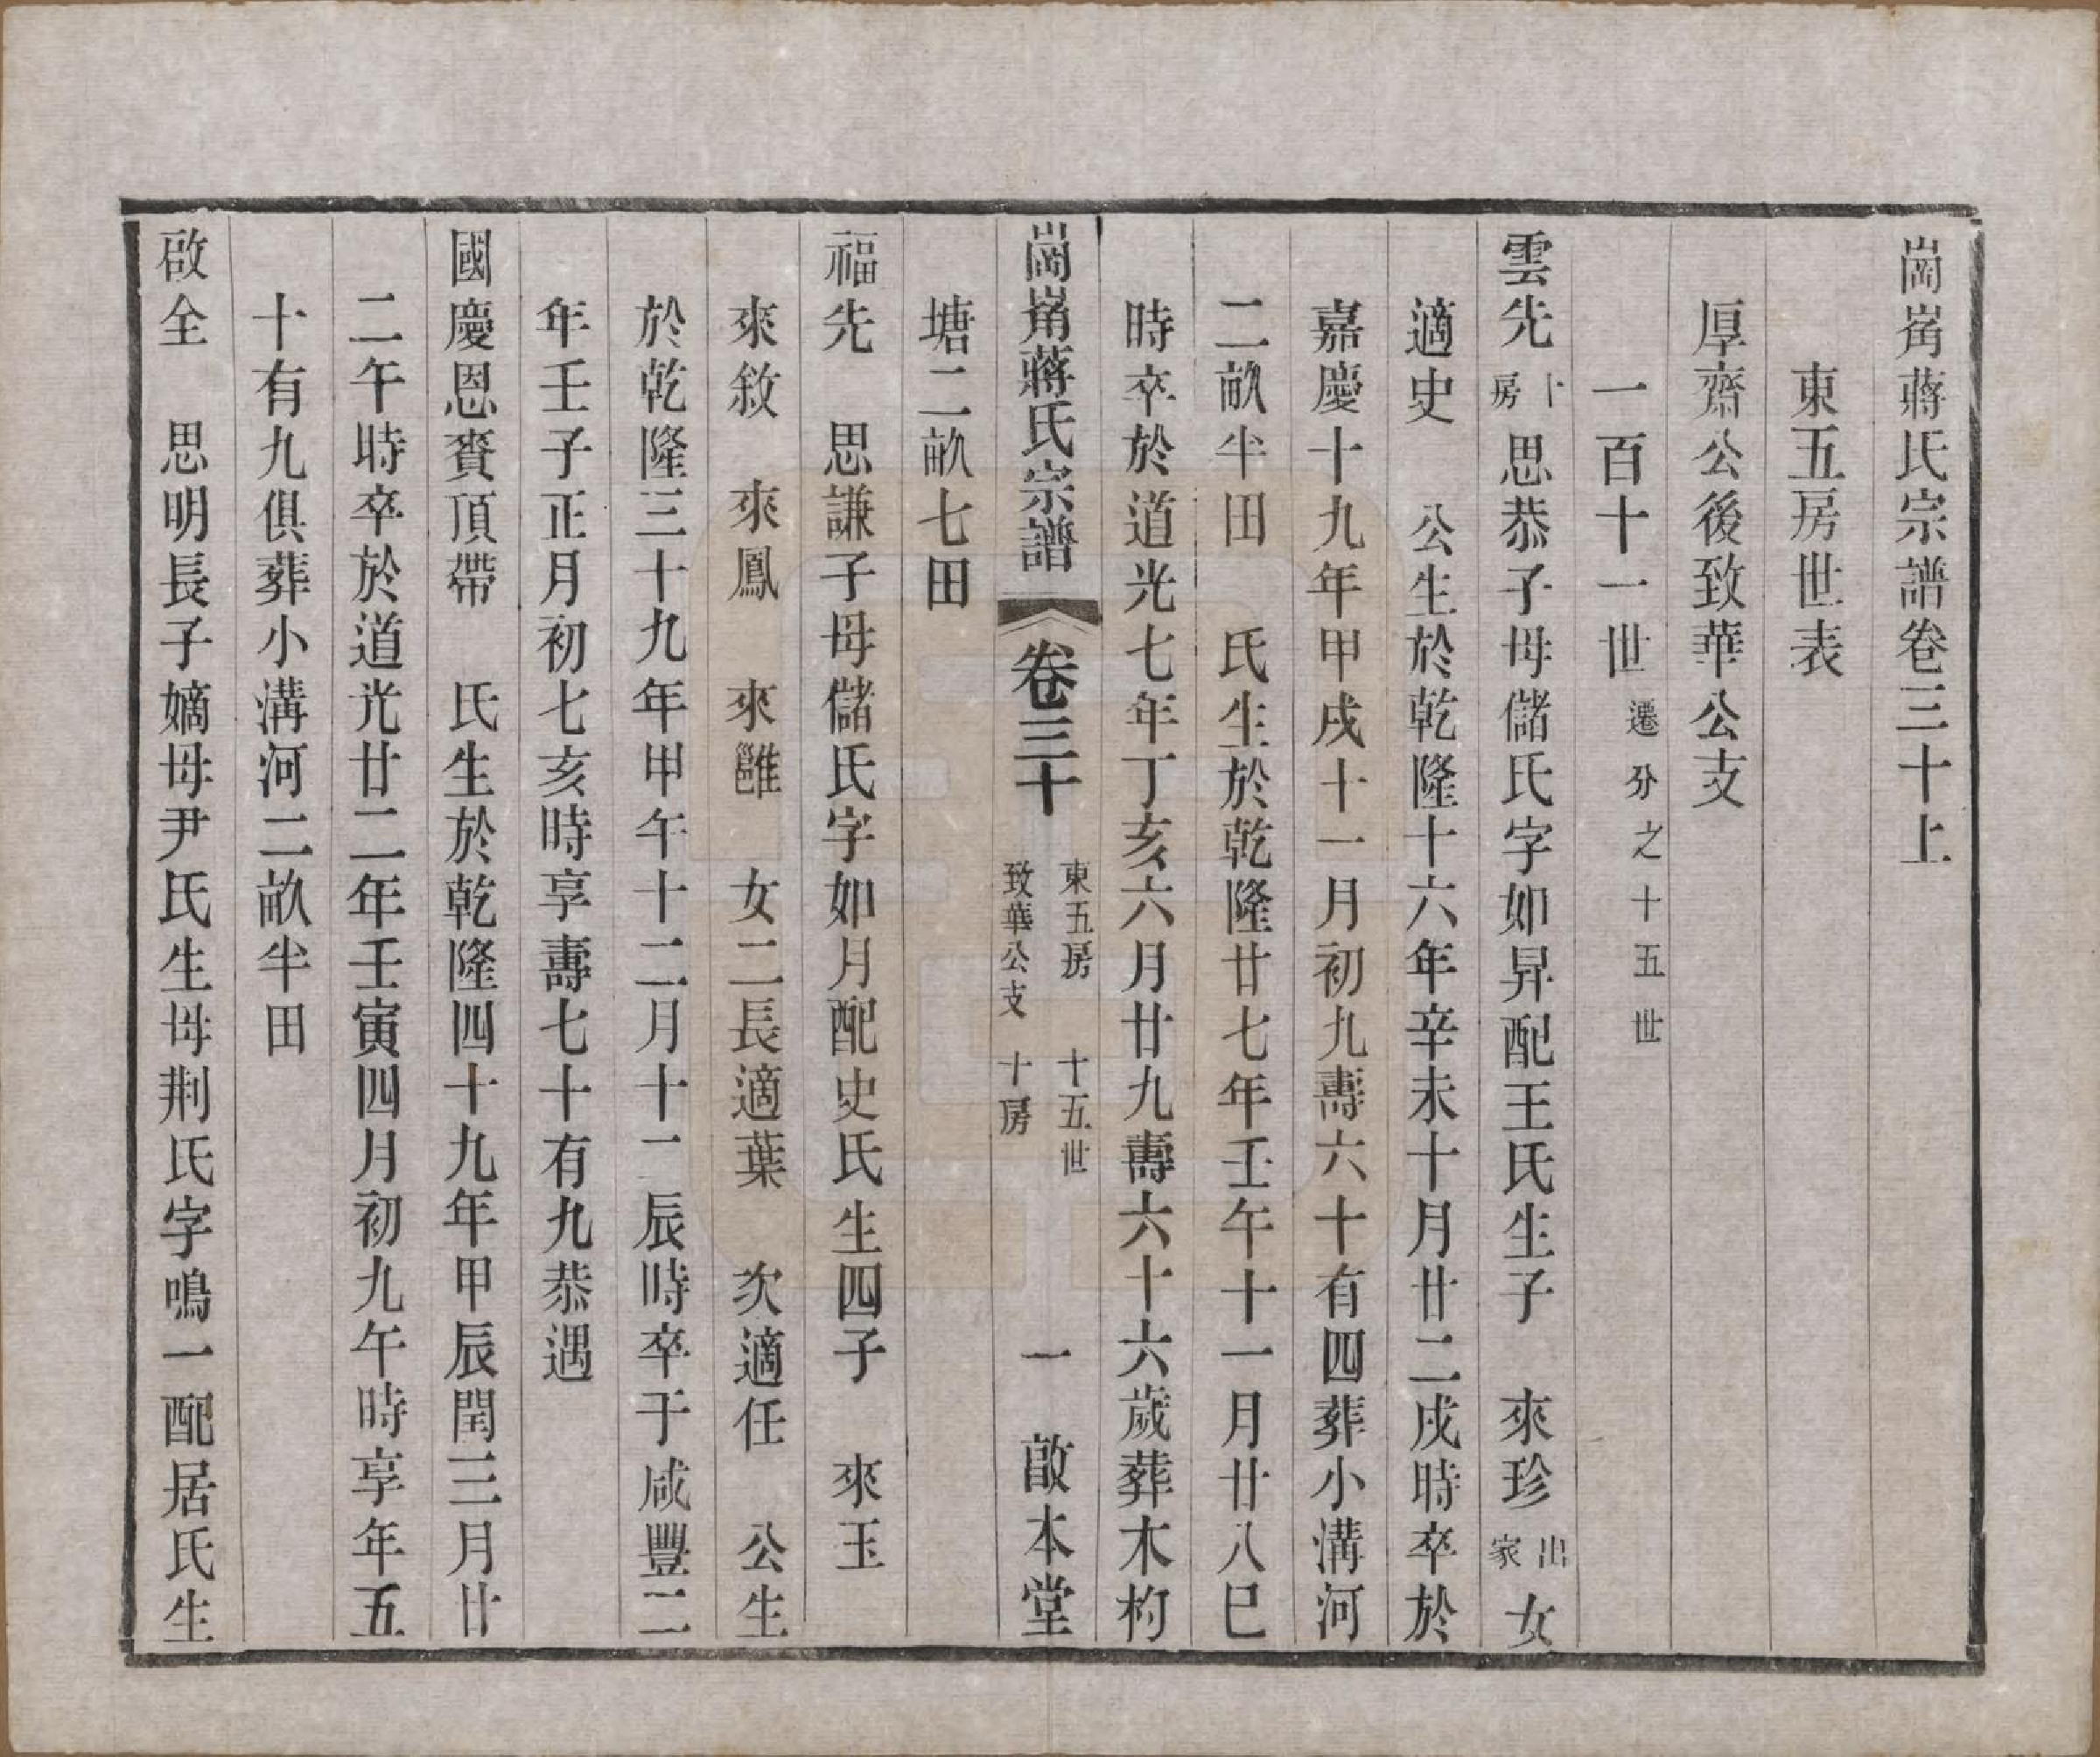 崗嶅蔣氏宗譜卷三十上
東五房世表
厚齋公後致華公支
一百十一世遷分之十五世
雲先十房思恭子母儲氏字如昇配王氏生子 來珍出家女
適史 公生於乾隆十六年辛未十月廿二戌時卒於
嘉慶十九年甲戌十一月初九壽六十有四葬小溝河
二畝半田 氏生於乾隆廿七年壬午十一月廿八巳
時卒於道光七年丁亥六月廿九壽六十六歲葬木杓
崗嶅蔣氏宗譜 卷三十 東五房 十五世 致華公支 十房 一 啟本堂
塘二畝七田
福先 思謙子母儲氏字如月配史氏生四子 來玉
來敘 來鳳 來雝 女二長適葉 次適任 公生
於乾隆三十九年甲午十二月十一辰時卒于咸豐二
年壬子正月初七亥時享壽七十有九恭遇
國慶恩賚頂帶 氏生於乾隆四十九年甲辰閏三月廿
二午時卒於道光廿二年壬寅四月初九午時享年五
十有九俱葬小溝河二畝半田
啟全 思明長子嫡母尹氏生母荆氏字鳴一配居氏生